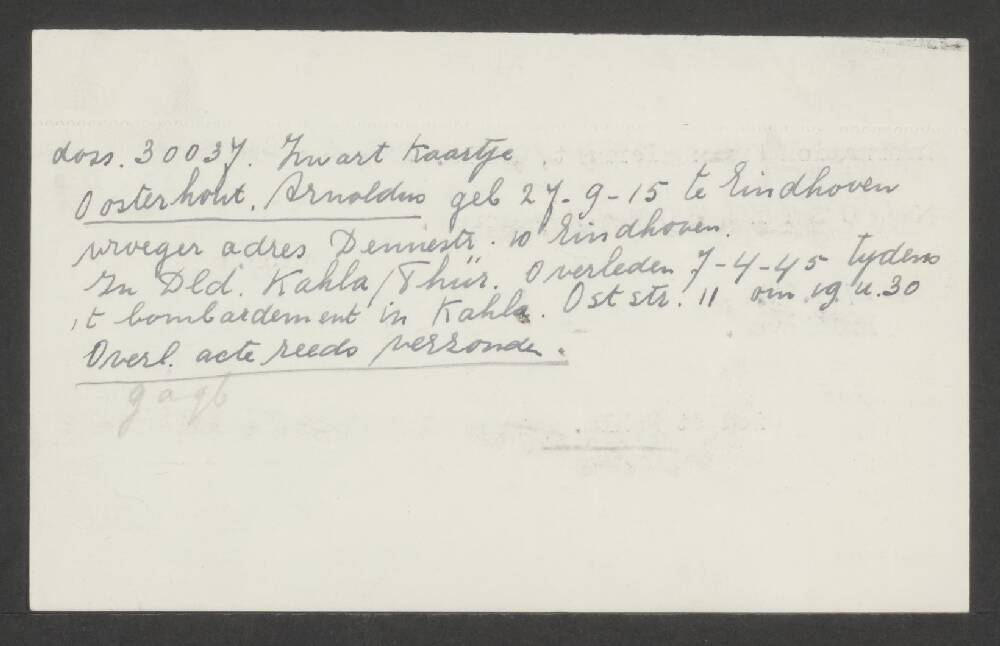 doss. 30037. Zwart Kaartje
Oosterhout. Arnoldus geb 27-9-15 te Eindhoven
vroeger adres Dennestr. 10 Eindhoven.
In Dld. Kahla/Thür. Overleden 7-4-45 tydens
't bombardement in Kahla. Oststr. 11 om 19 u. 30
Overl. acte reeds verzonden.